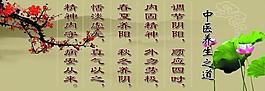 中医养生之道
调节阴阳，顺应四时，
内固精神，外
春夏养阳，秋冬养阴，
恬淡虚无，真气从之，
精神内守，病安从来。